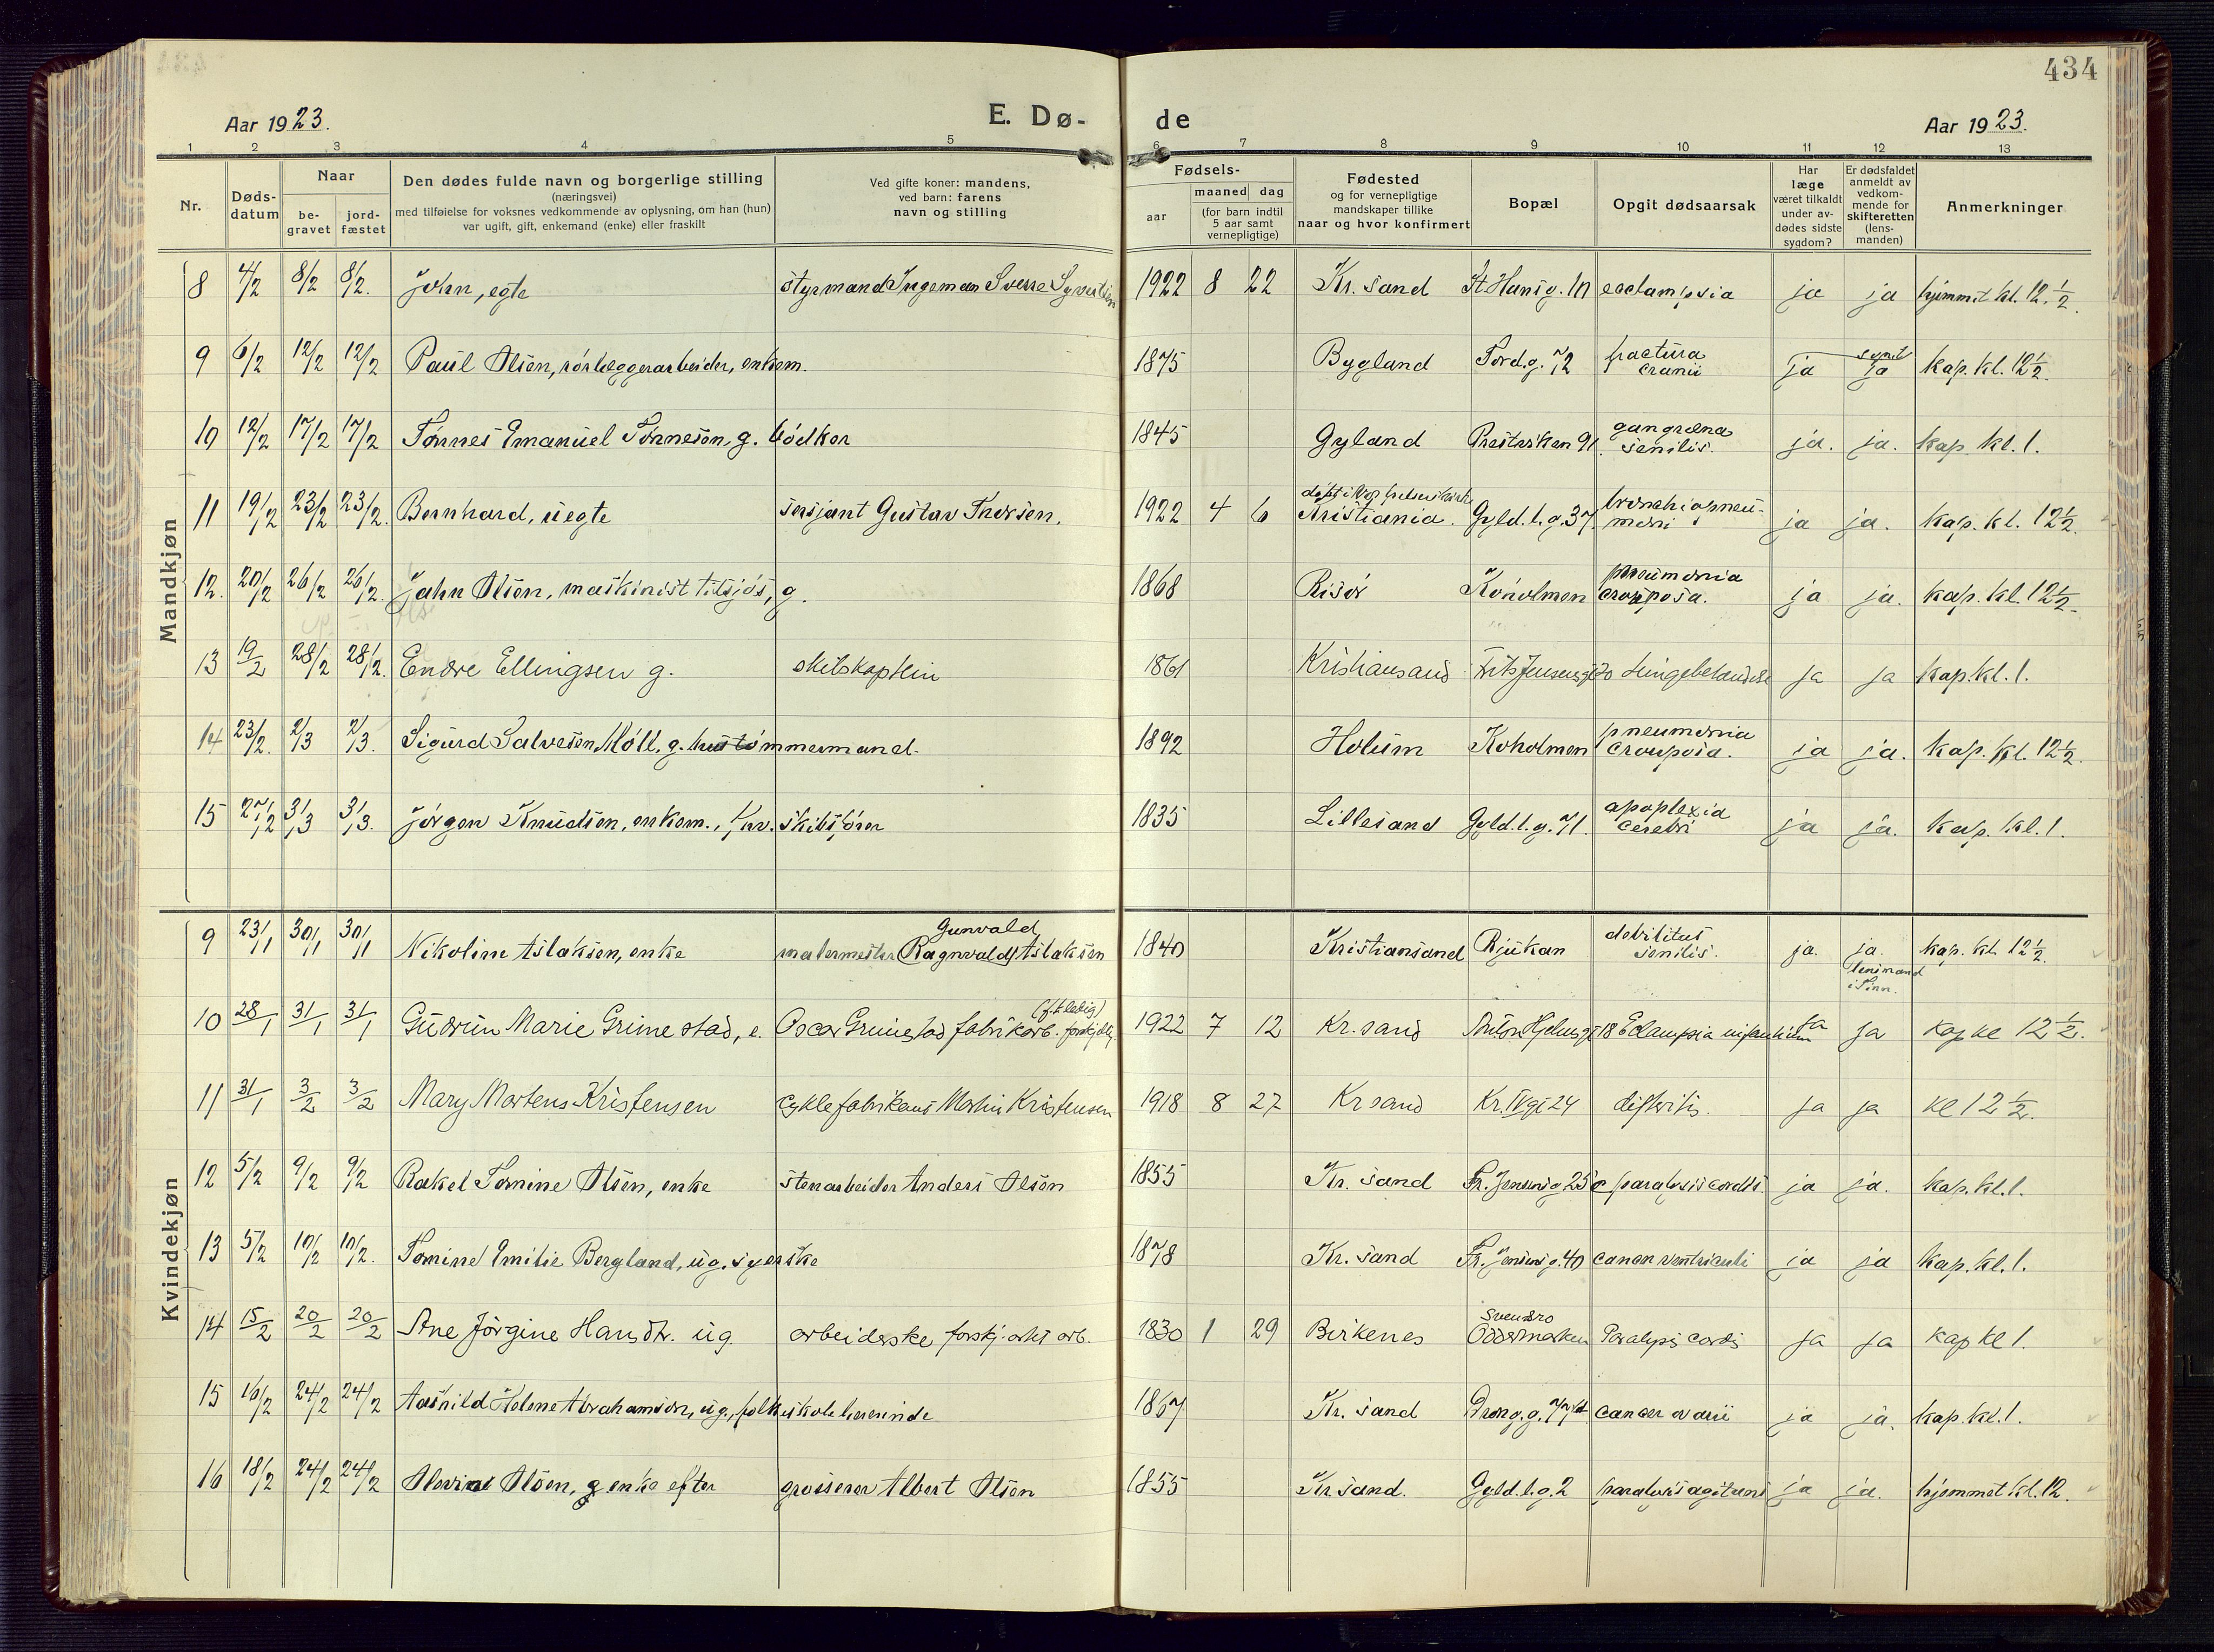 434
Aar 1923.
E. Dø-
de
Aar 1923.
1 2 3 4 5 6 7 8 9 10 11 12 13
Nr.
Døds-
datum
Naar
be-
gravet
jord-
fæstet
Den dødes fulde navn og borgerlige stilling
(næringsvei)
med tilføielse for voksnes vedkommende av oplysning, om han (hun)
var ugift, gift, enkemand (enke) eller fraskilt
Ved gifte koner: mandens,
ved barn: farens
navn og stilling
Fødsels-
aar
maaned dag
(for barn indtil
5 aar samt
vernepligtige)
Fødested
og for vernepligtige
mandskaper tillike
naar og hvor konfirmert
Bopæl
Opgit dødsaarsak
Har
læge
været tilkaldt
under av-
dødes sidste
sygdom?
Er dødsfaldet
anmeldt av
vedkom-
mende for
skifteretten
(lens-
manden)
Anmerkninger
Mandkjøn
8 4/2 8/2 8/2. John, egte styrmand Ingeman Sverre Syvertsen 1922 8 22 Kr. sand St. Hansg. 10 eclampsia ja ja hjemmet kl. 12 1/2.
9 6/2 12/2 12/2 Paul Olsen, rörlæggerarbeider, enkem. 1875 Bygland Tord.g. 72 fractura
cranii ja ja kap. kl. 12 1/2.
10 12/2 17/2 17/2 Tønnes Emanuel Tønnesen, g. bödker 1845 Gyland 91. gangræna
senilis. ja. ja. kap. kl. 1.
11 19/2 23/2 23/2. Bernhard, uegte sersjant Gustav Thorsen. 1922 4 6 døpt i Vor frelsers kirke
Kristiania. Gyld.l.g. 37 bronchiopneu-
moni ja ja. kap. kl. 12 1/2.
12. 20/2 26/2 26/2. John Olsen, maskinist tilsjøs, g. 1868 Risör Koholmen pneumonia
crouposa. ja ja. kap. kl. 12 1/2.
13 19/2 28/2 28/2. Endre Ellingsen g. skibskaptein 1861 Kristiansand Frits Jensensgt 20 ja ja kap. kl. 1.
14 23/2. 2/3 2/3. Sigurd Salvesen Möll, g. hustømmermand. 1892 Holum Koholmen pneumonia
crouposa. ja ja. kap. kl. 12 1/2.
15 27/2 3/3 3/3. Jörgen Knudsen, enkem., fhv. skibsfører 1835 Lillesand Gyld.l.g. 71. apoplexia
cerebri ja ja. kap. kl. 1.
Kvindekjøn
9 23/1 30/1 30/1 Nikoline Aslaksen, enke Gunvald
malermester (Ragnvald) Aslaksen 1840 Kristiansand Rjukan debilitas
senilis. ja. ja.
lensmand
i Tinn. kap. kl. 12 1/2.
10 28/1 31/1 31/1 Gudrun Marie Grimestad, e. Oscar Grimestad fabrikarb. 1922 7 12 Kr. sand 18 Eclampsia infantium ja ja kap kl 12 1/2.
11 31/1 3/2 3/2 Mary Martens Kristensen cyklefabrikant Martin Kristensen 1918 8 27 Kr sand Kr. IV gt 24 difteritis. ja ja kl 12 1/2.
12 5/2 9/2 9/2 Rakel Tomine Olsen, enke stenarbeider Anders Olsen 1855 Kr. sand Fr. Jensensg 25 c paralysis cordis ja ja. kap. kl. 1.
13 5/2 10/2 10/2. Tomine Emilie Bergland, ug. syerske 1878 Kr. sand Fr. Jensensg. 40 cancer ventriculi ja ja kap. kl. 1.
14 15/2 20/2 20/2 Ane Jörgine Hansdtr. ug. arbeiderske forskj. arb. 1830 1 29 Birkenes Svensro
Oddernes Paralysis cordis ja ja kap kl 1.
15 16/2 24/2 24/2 Aashild Helene Abrahamsen, ug., folkeskolelærerinde 1867 Kr. sand Dron.g. cancer ovarii ja ja. kap. kl. 1.
16 18/2 24/2 24/2 Olsen, g enke efter grosserer Albert Olsen 1855 Kr. sand. Gyld.l.g. 2 paralysis agitans ja ja. hjemmet kl. 12.